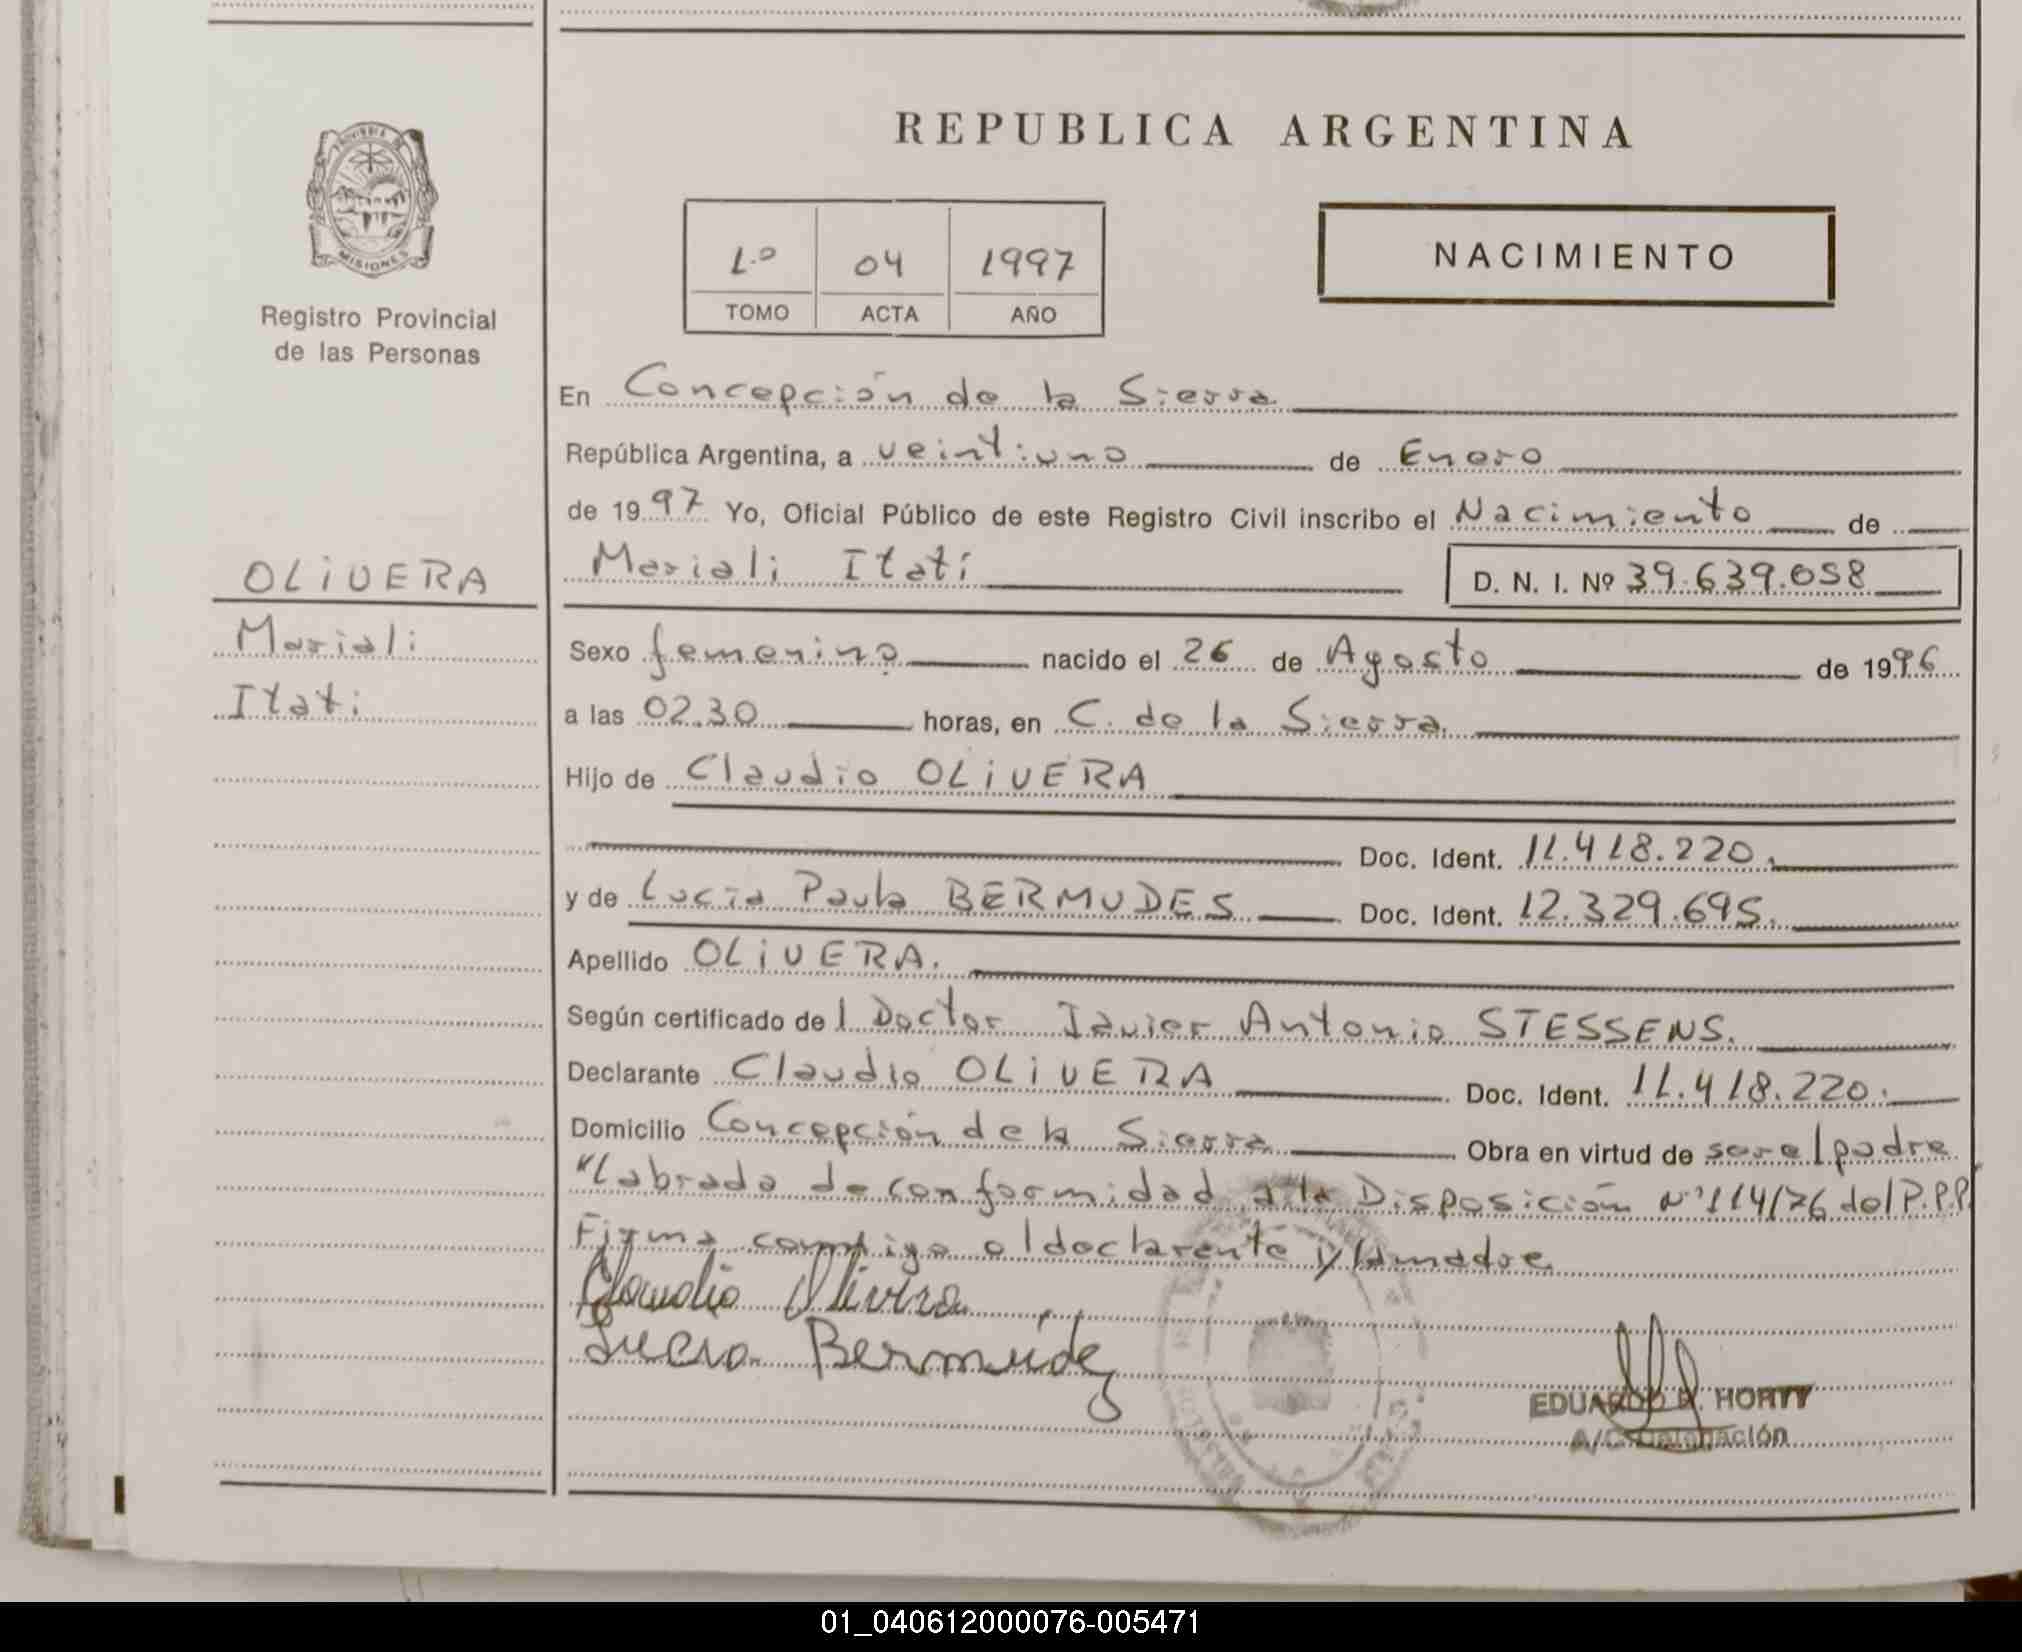 REPUBLICA ARGENTINA
PROVINCIA DE
MISIONES
Registro Provincial
de las Personas
1.º 04 1997
TOMO ACTA AÑO
NACIMIENTO
En Concepción de la Sierra
República Argentina, a veintiuno de Enero
de 1997 Yo, Oficial Público de este Registro Civil inscribo el Nacimiento de
Mariali Itatí D. N. I. Nº 39.639.058
OLIVERA
Mariali
Itati
Sexo femenino nacido el 26 de Agosto de 1996
a las 02.30 horas, en C. de la Sierra.
Hijo de Claudio OLIVERA
Doc. Ident. 11.418.220.
y de Lucia Paula BERMUDES Doc. Ident. 12.329.695.
Apellido OLIVERA.
Según certificado del Doctor Javier Antonio STESSENS.
Declarante Claudio OLIVERA Doc. Ident. 11.418.220.
Domicilio Concepción de la Sierra Obra en virtud de ser el padre
"Labrada de conformidad a la Disposición Nº 114/76 del P.P.P.
Firma conmigo el declarante y la madre
Claudio Olivera
Lucia Bermudez
EDUARDO R. HORTT
A/C Delegación
01_040612000076-005471